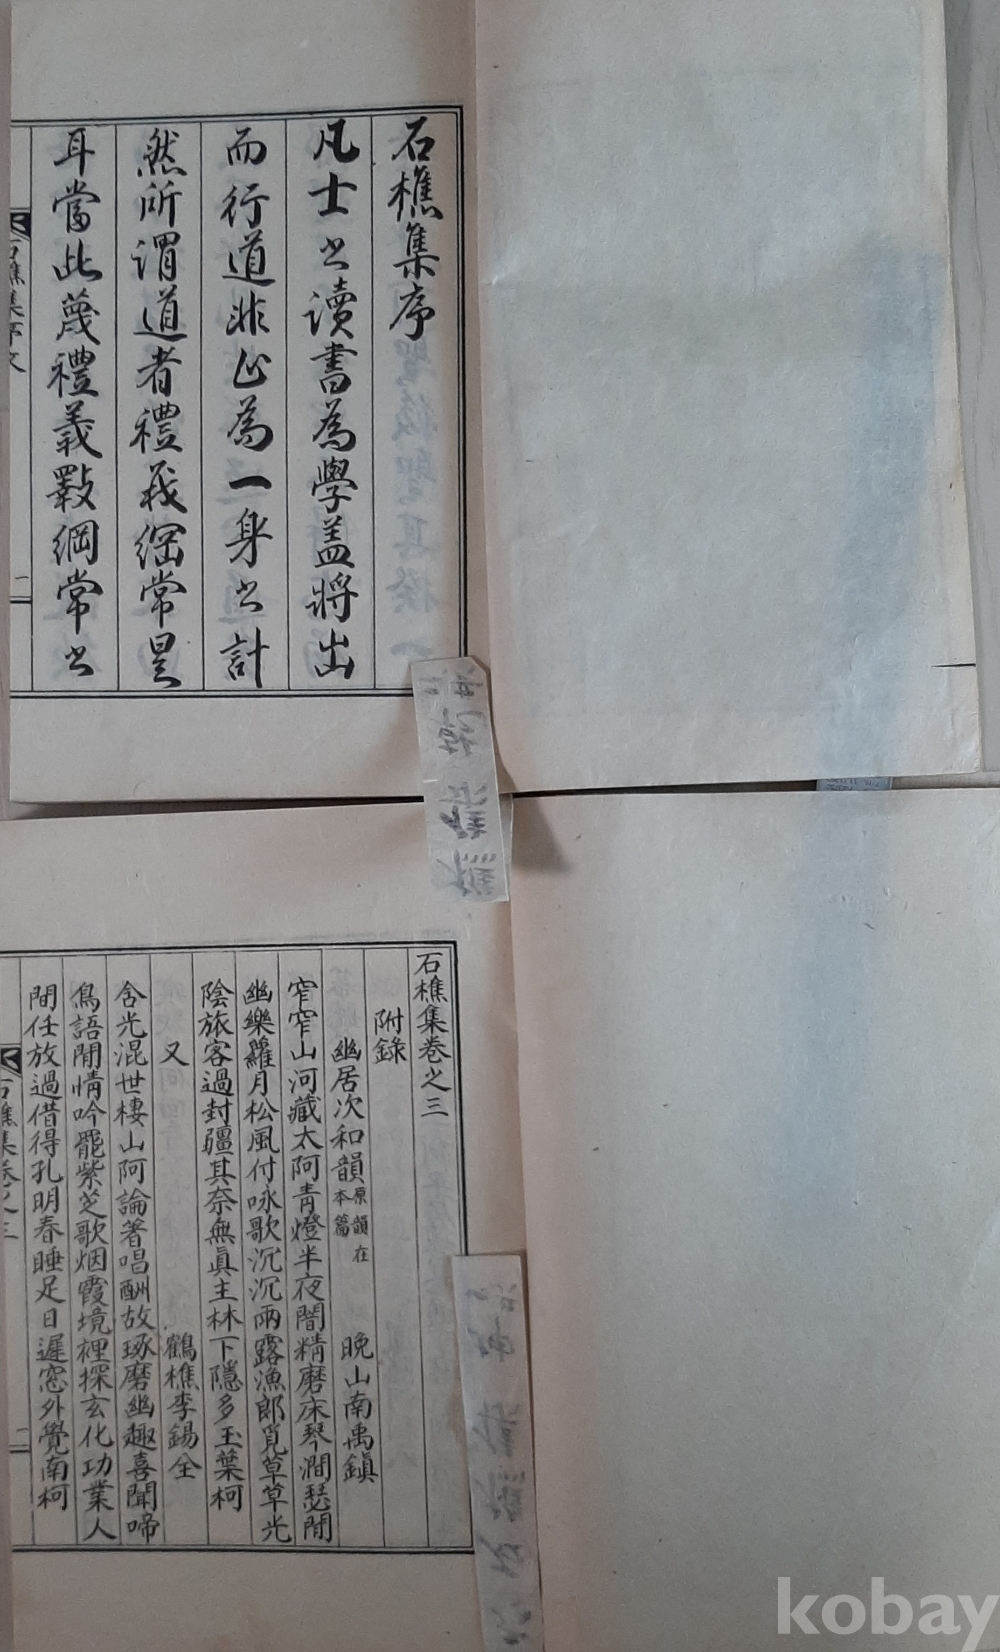 石樵集序
凡士之讀書為學盖將出
而行道非止為一身之計
然所謂道者禮義綱常是
耳當此蔑禮義斁綱常之
石樵集序文
石樵集卷之三
附錄
幽居次和韻 原韻在本篇 晚山南禹鎭
窄窄山河藏太阿青燈半夜闇精磨床琴澗瑟閒
幽樂蘿月松風付咏歌沉沉雨露漁郎覓草草光
陰旅客過封疆其奈無眞主林下隱多玉葉柯
又 鶴樵李錫全
含光混世棲山阿論著唱酬故琢磨幽趣喜聞啼
鳥語閒情吟罷紫芝歌烟霞境裡探玄化功業人
間任放過借得孔明春睡足日遲窓外覺南柯
石樵集卷之三
kobay